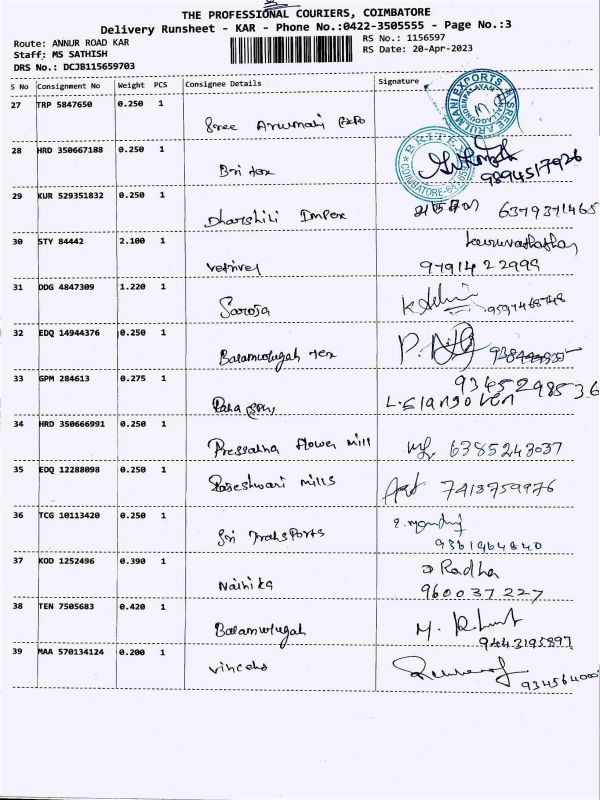 THE PROFESSIONAL COURIERS, COIMBATORE
Delivery Runsheet - KAR - Phone No.:0422-3505555 - Page No.:3
Route: ANNUR ROAD KAR
RS No.: 1156597
Staff: MS SATHISH
RS Date: 20-Apr-2023
DRS No.: DCJB115659703
S No Consignment No Weight PCS Consignee Details Signature
27 TRP 5847650 0.250 1
Sree Arumani Expo
28 HRD 350667188 0.250 1
Britex
9894517926
29 KUR 529351832 0.250 1
Dharshili Impex 6379371465
30 STY 84442 2.100 1
Vetrivel 9791422999
31 DDG 4847309 1.220 1
Saroja 9597468748
32 EDQ 14944376 0.250 1
Balamurugan Tex
33 GPM 284613 0.275 1
9345298536
L. Elangoven
34 HRD 350666991 0.250 1
Flower Mill 6385243037
35 EDQ 12288098 0.250 1
Rajeshwari Mills 7418759976
36 TCG 10113420 0.250 1
Sri Transports
9361964840
37 KOD 1252496 0.390 1
Radha
Nainika 960037227
38 TEN 7505683 0.420 1
Balamurugan
9443195897
39 MAA 570134124 0.200 1
934564000